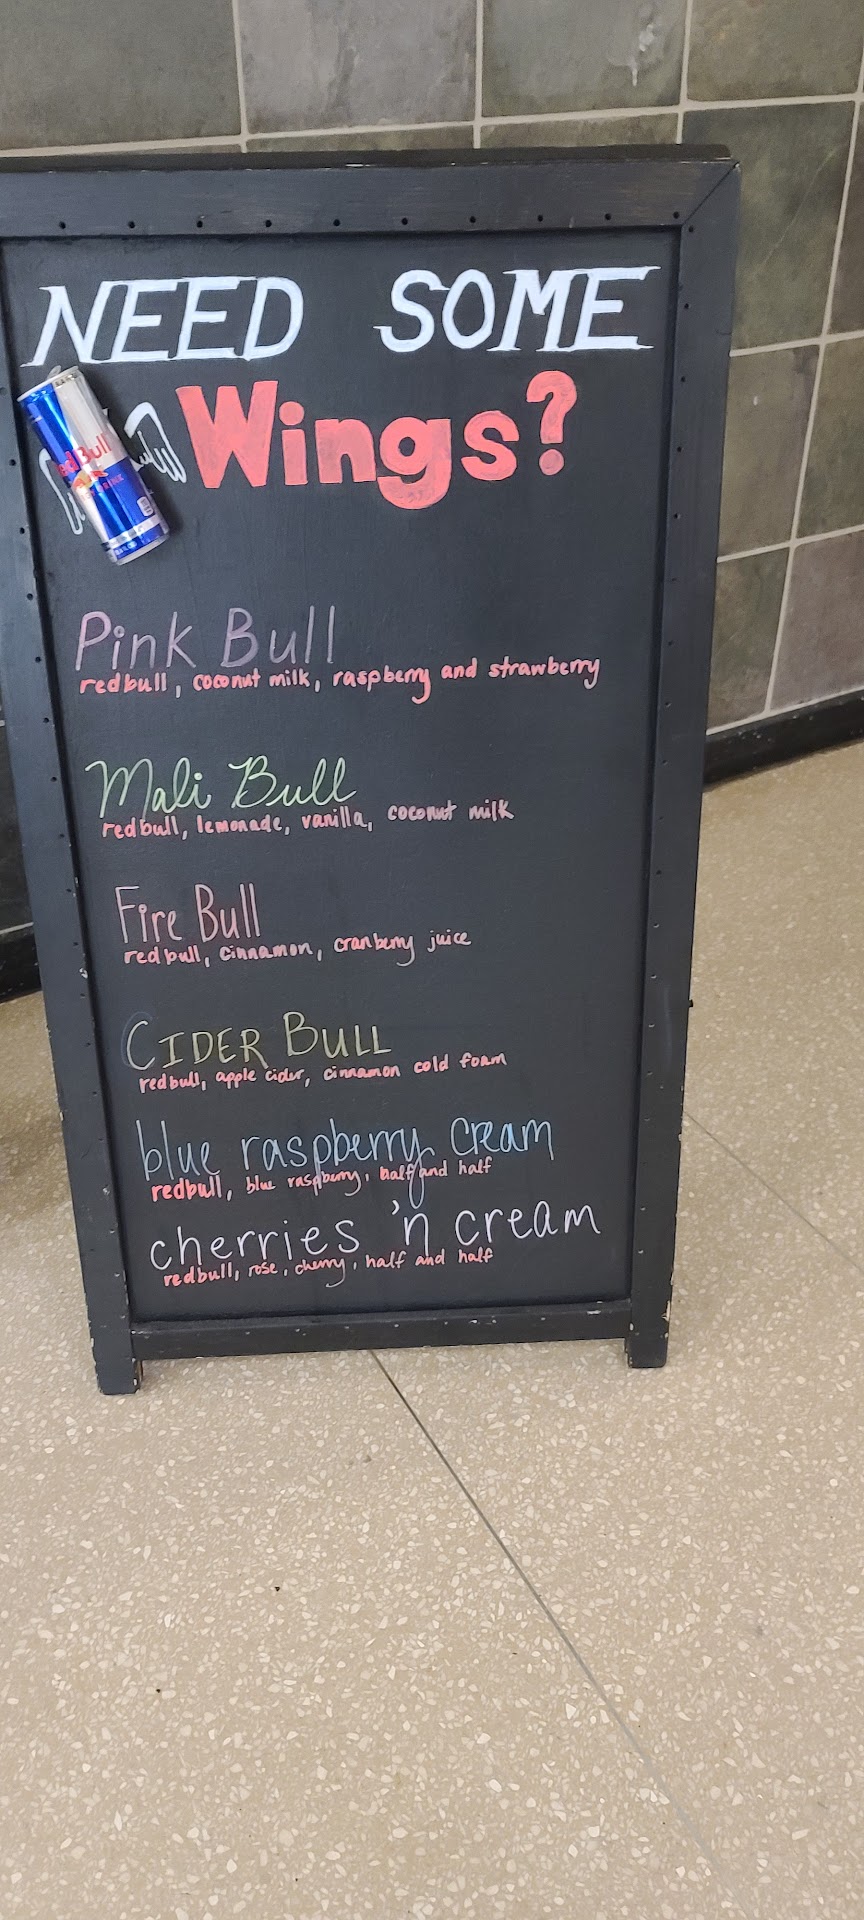 NEED SOME
Wings?
Red Bull
ENERGY DRINK
Pink Bull
redbull, coconut milk, raspberry and strawberry
Mali Bull
redbull, lemonade, vanilla, coconut milk
Fire Bull
redbull, cinnamon, cranberry juice
CIDER BULL
redbull, apple cider, cinnamon cold foam
blue raspberry cream
redbull, blue raspberry, half and half
cherries 'n cream
redbull, rose, cherry, half and half